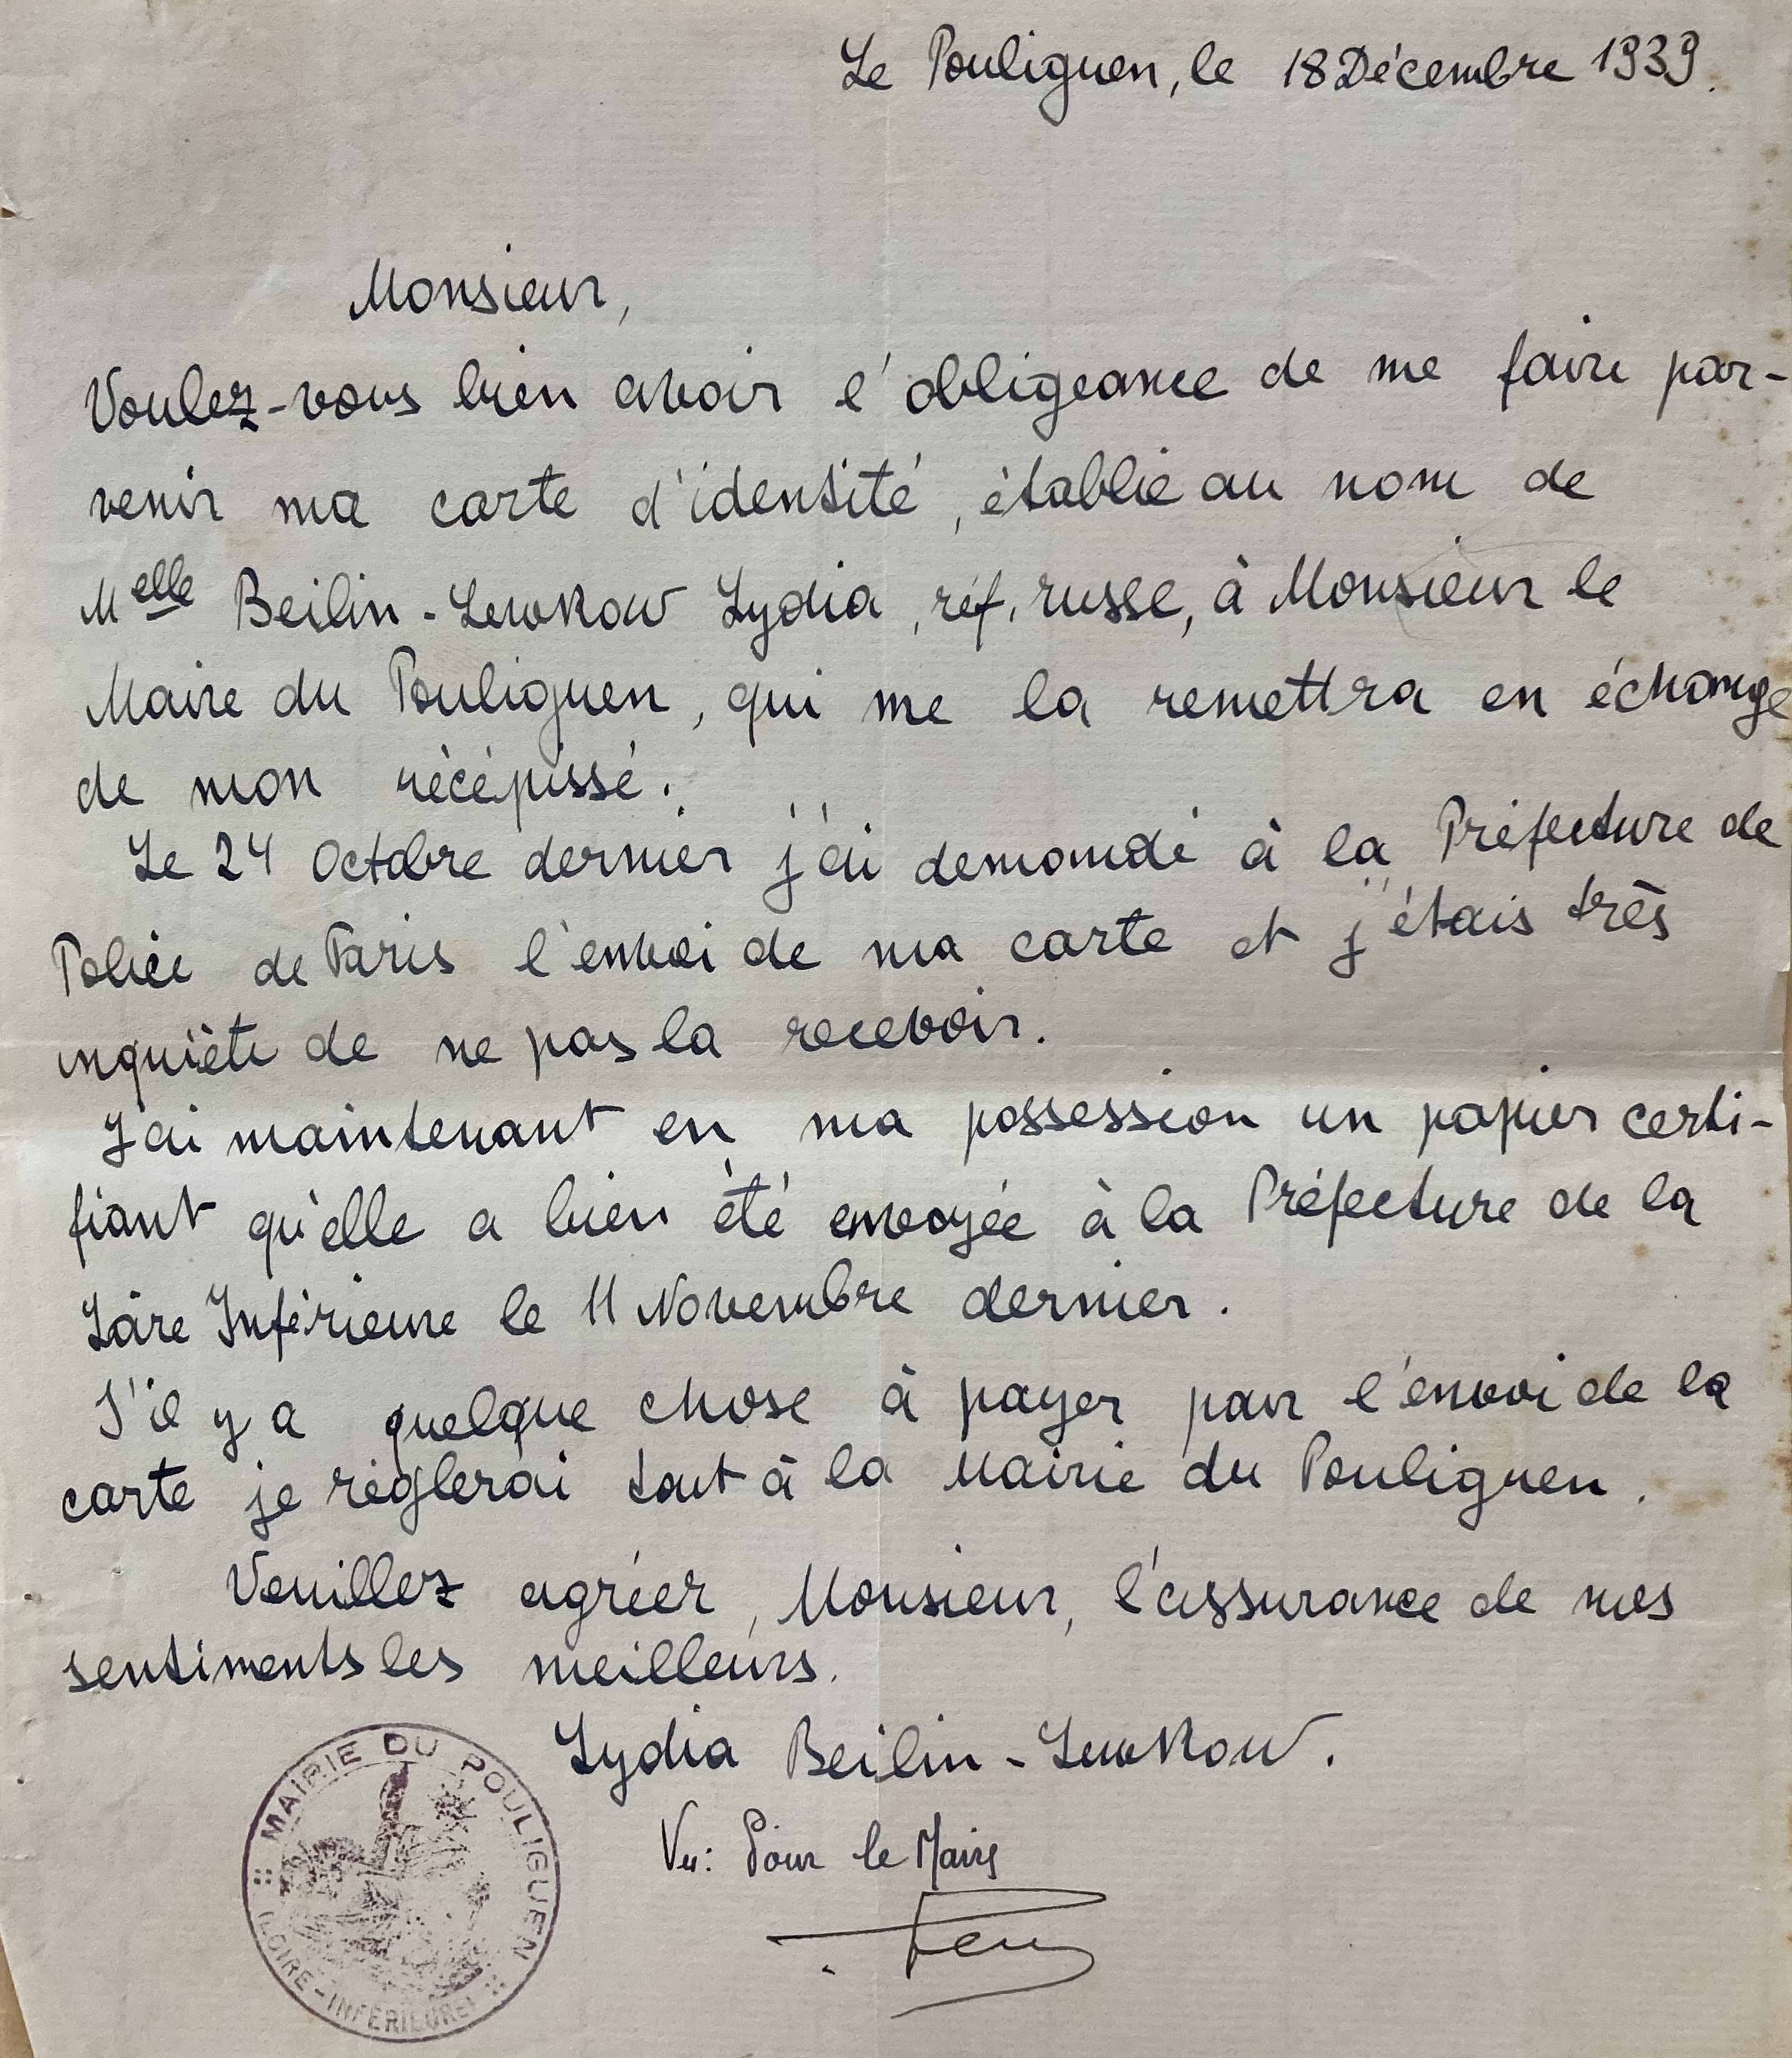 Le Pouliguen, le 18 Décembre 1939.
Monsieur,
Voulez-vous bien avoir l'obligeance de me faire par-
venir ma carte d'identité, établie au nom de
Melle Beilin-Lewkow Lydia, réf. russe, à Monsieur le
Maire du Pouliguen, qui me la remettra en échange
de mon récépissé.
Le 24 Octobre dernier j'ai demandé à la Préfecture de
Police de Paris l'envoi de ma carte et j'étais très
inquiète de ne pas la recevoir.
J'ai maintenant en ma possession un papier certi-
fiant qu'elle a bien été envoyée à la Préfecture de la
Loire Inférieure le 11 Novembre dernier.
S'il y a quelque chose à payer pour l'envoi de la
carte je règlerai tout à la Mairie du Pouliguen.
Veuillez agréer, Monsieur, l'assurance de mes
sentiments les meilleurs.
Lydia Beilin-Lewkow.
Vu: Pour le Maire
MAIRIE DU POULIGUEN
(LOIRE-INFÉRIEURE)